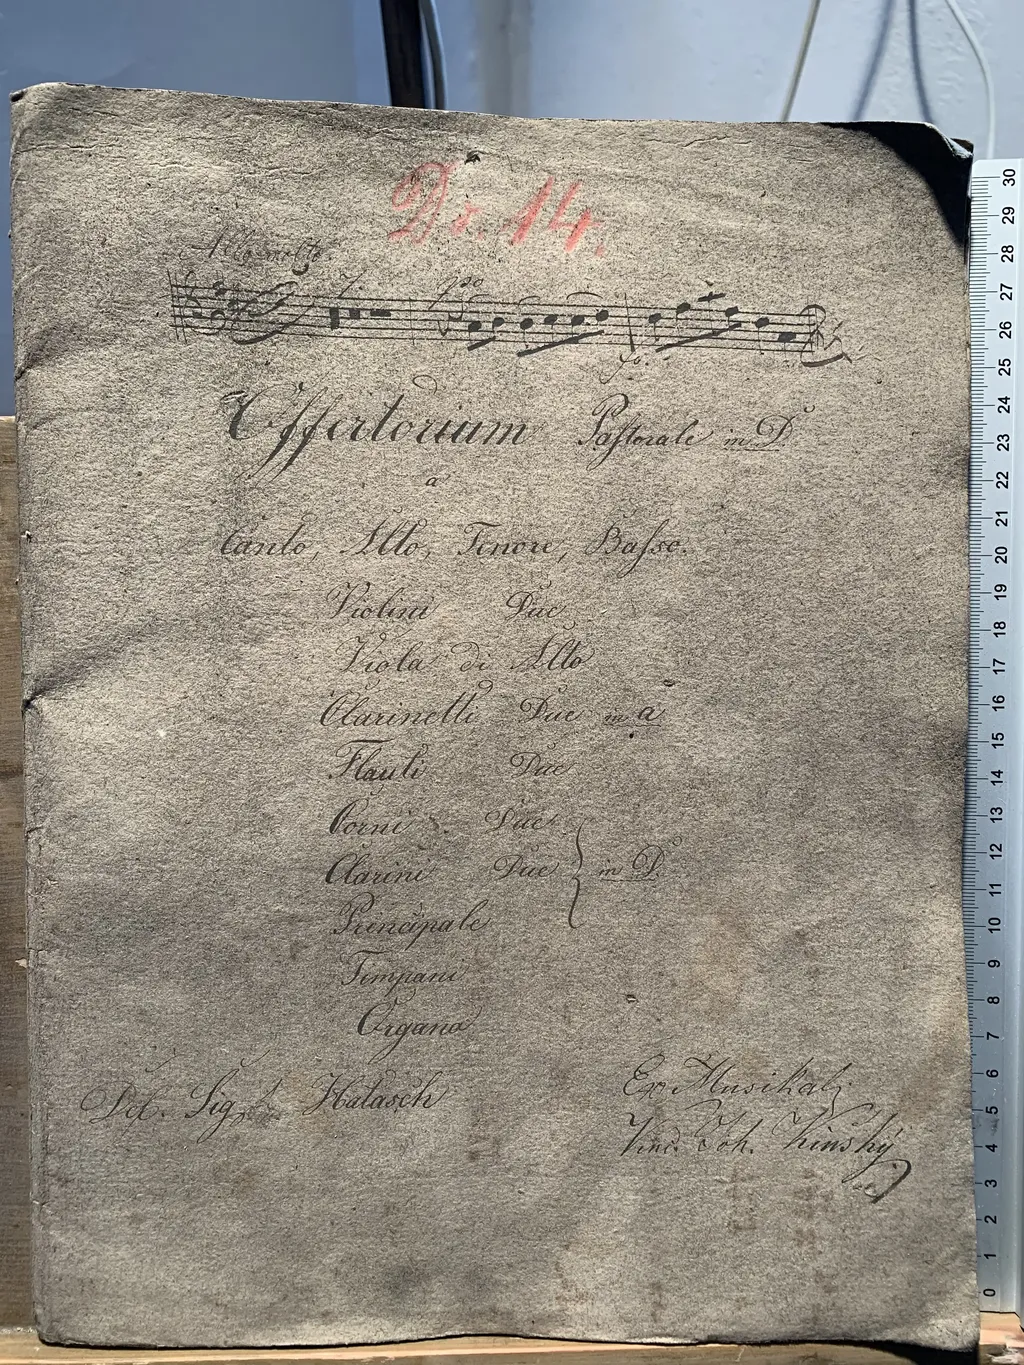 Nr. 14.
Allo molto.
7.
Offertorium Pastorale in D
a
Canto, Alto, Tenore, Basso.
Violini Due
Viola di Alto
Clarinetti Due in a
Flauti Due
Corni Due
Clarini Due in D
Principale
Timpani
Organo
Del. Sig. Halasch
Ex Musikal:
Vinc. Joh. Kinský
30
29
28
27
26
25
24
23
22
21
20
19
18
17
16
15
14
13
12
11
10
9
8
7
6
5
4
3
2
1
0